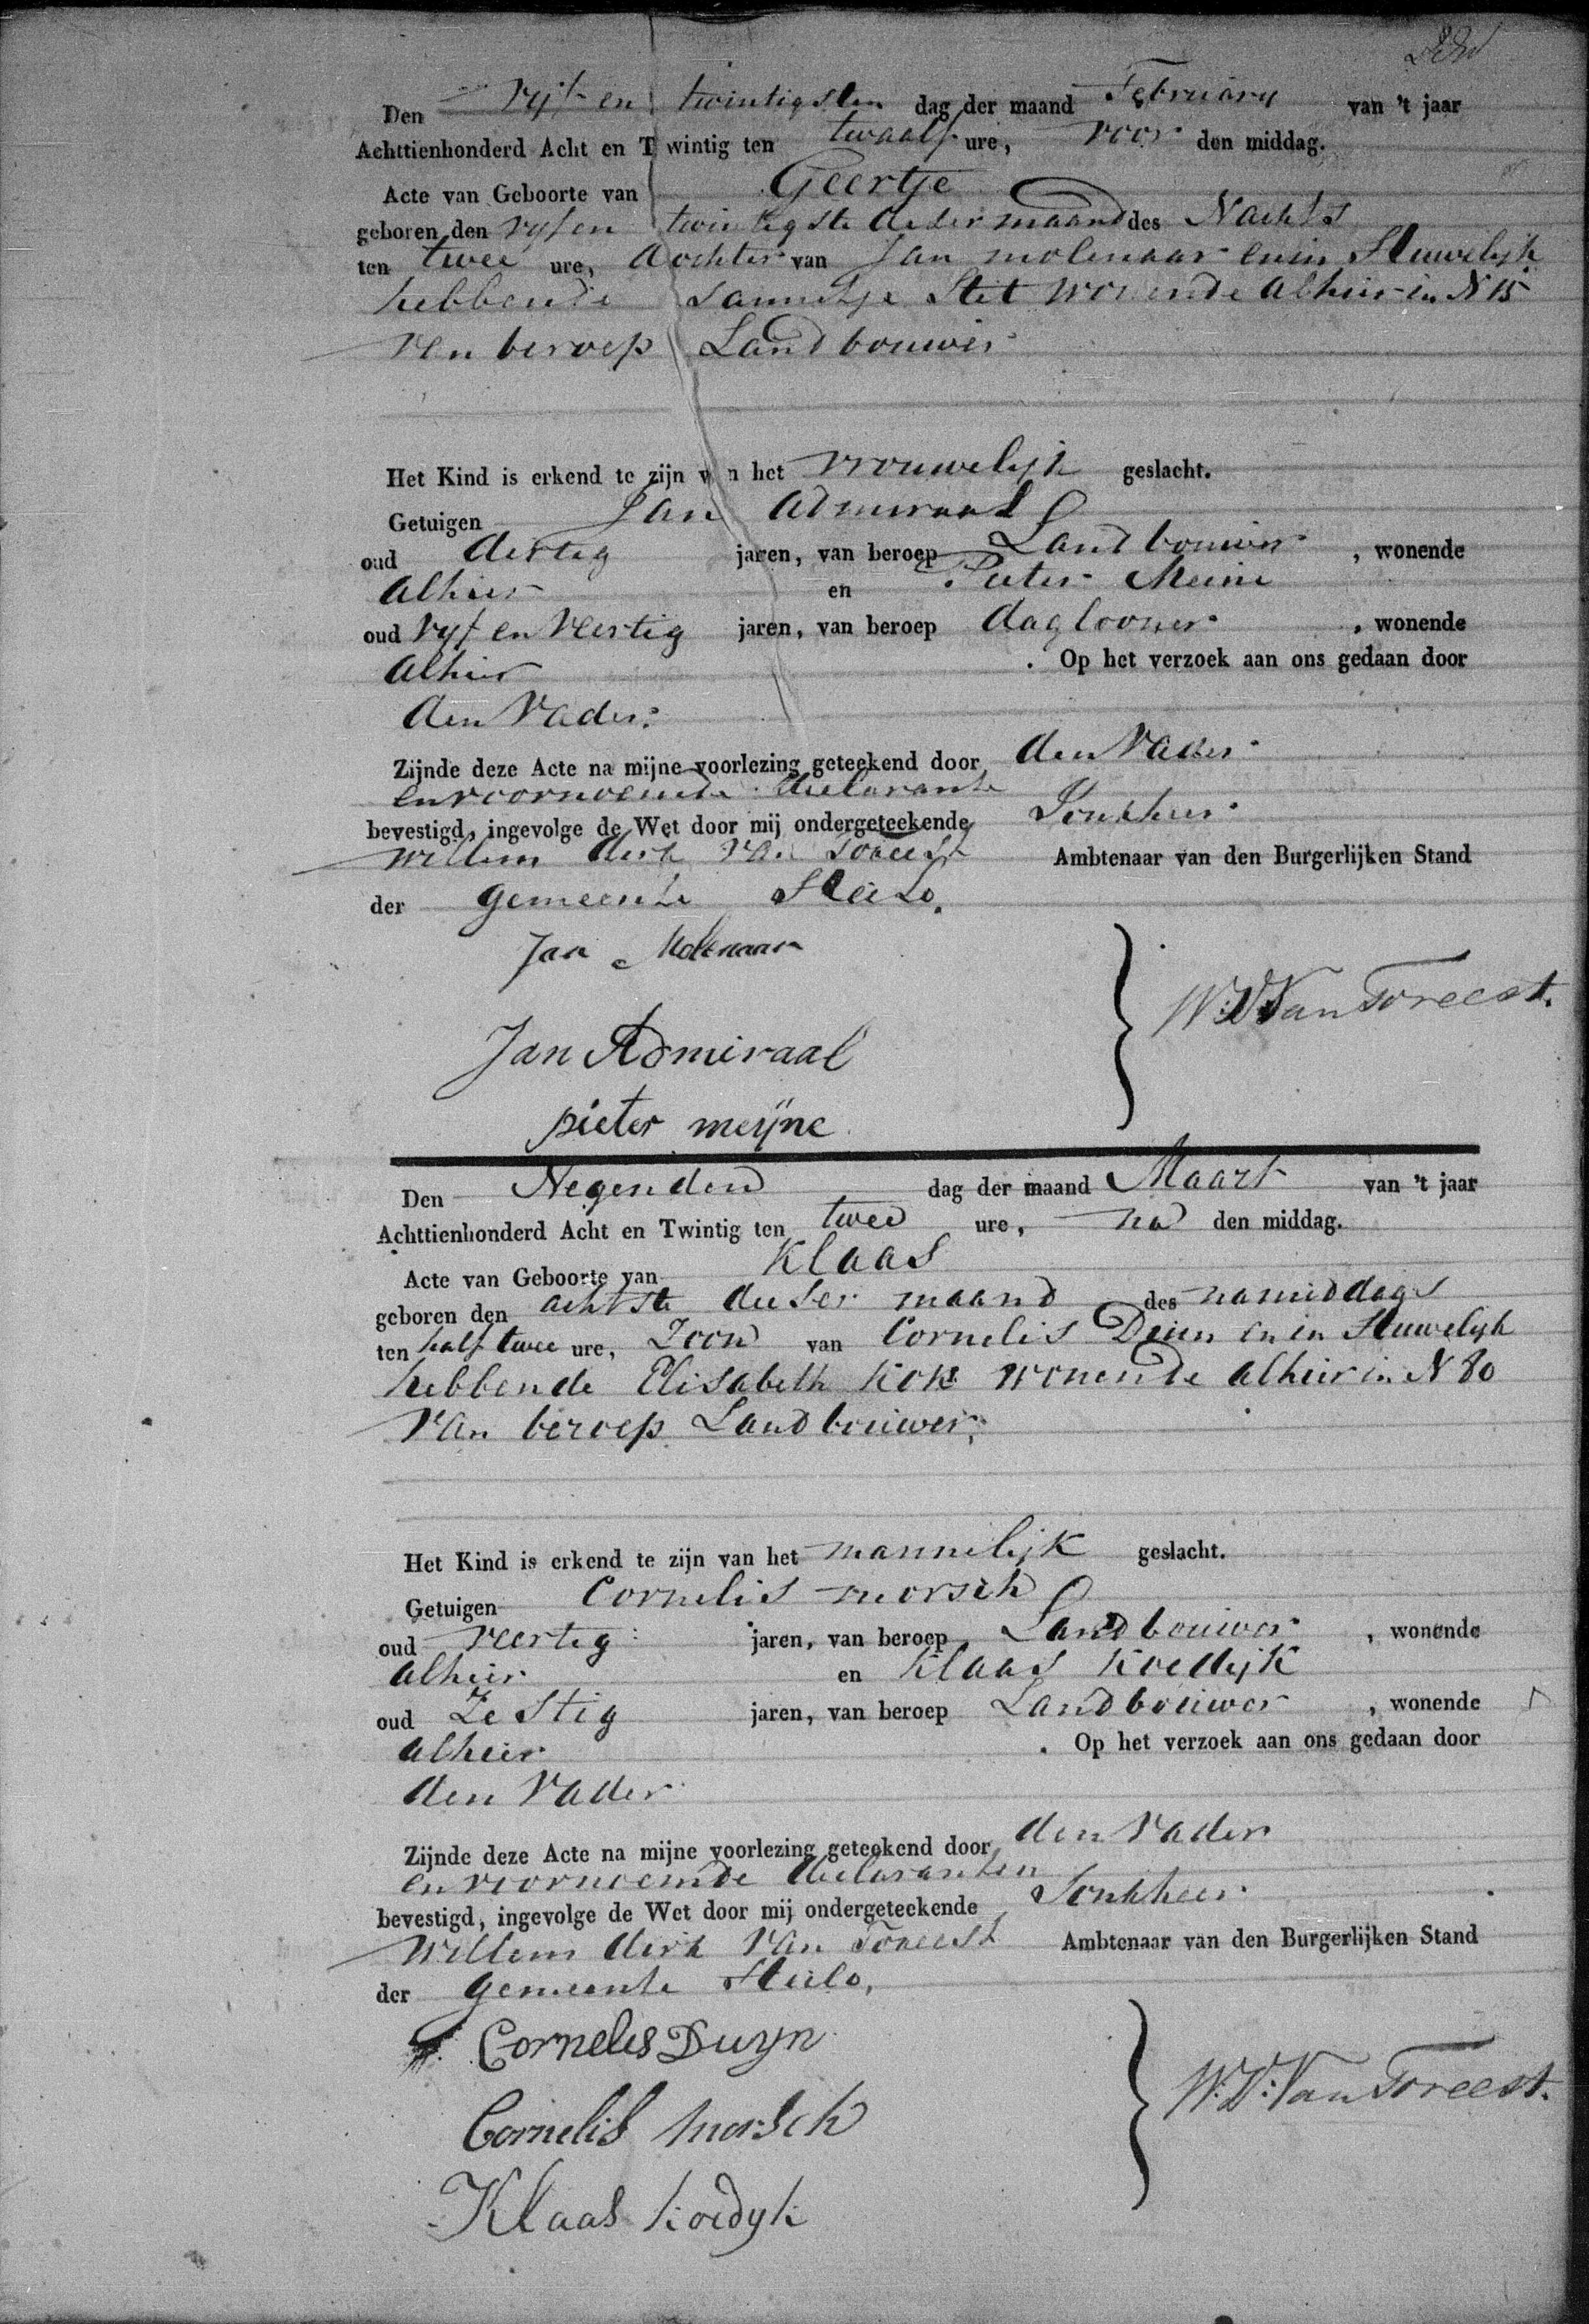 Den vijf en twintigsten dag der maand February van 't jaar
Achttienhonderd Acht en Twintig ten twaalf ure, voor den middag.
Acte van Geboorte van Geertje
geboren den vijf en twintigste deser maand des Nachts
ten twee ure, dochter van Jan molenaar en in Huwelijk
hebbende Jannetje Stet wonende alhier in N 15
van beroep Landbouwer
Het Kind is erkend te zijn van het vrouwelijk geslacht.
Getuigen Jan Admiraal
oud dertig jaren, van beroep Landbouwer, wonende
alhier en Pieter Meine
oud vijf en veertig jaren, van beroep daglooner, wonende
alhier. Op het verzoek aan ons gedaan door
den Vader.
Zijnde deze Acte na mijne voorlezing geteekend door den Vader
en voornoemde declarante
bevestigd, ingevolge de Wet door mij ondergeteekende Jonkheer
Willem dirk van Foreest Ambtenaar van den Burgerlijken Stand
der gemeente Heilo.
Jan Molenaar
W: D: Van Foreest.
Jan Admiraal
pieter meijne
Den Negenden dag der maand Maart van 't jaar
Achttienhonderd Acht en Twintig ten twee ure, na den middag.
Acte van Geboorte van Klaas
geboren den achtste deeser maand des namiddags
ten half twee ure, Zoon van Cornelis Duin en in Huwelijk
hebbende Elisabeth Kok wonende alhier in N 80
van beroep Landbouwer.
Het Kind is erkend te zijn van het mannelijk geslacht.
Getuigen Cornelis morsch
oud veertig jaren, van beroep Landbouwer, wonende
alhier en Klaas Koedijk
oud Zestig jaren, van beroep Landbouwer, wonende
alhier. Op het verzoek aan ons gedaan door
den Vader
Zijnde deze Acte na mijne voorlezing geteekend door den Vader
en voornoemde declaranten
bevestigd, ingevolge de Wet door mij ondergeteekende Jonkheer
Willem dirk van Foreest Ambtenaar van den Burgerlijken Stand
der gemeente Heilo,
Cornelis Duijn
W: D: Van Foreest.
Cornelis morsch
Klaas koedyk